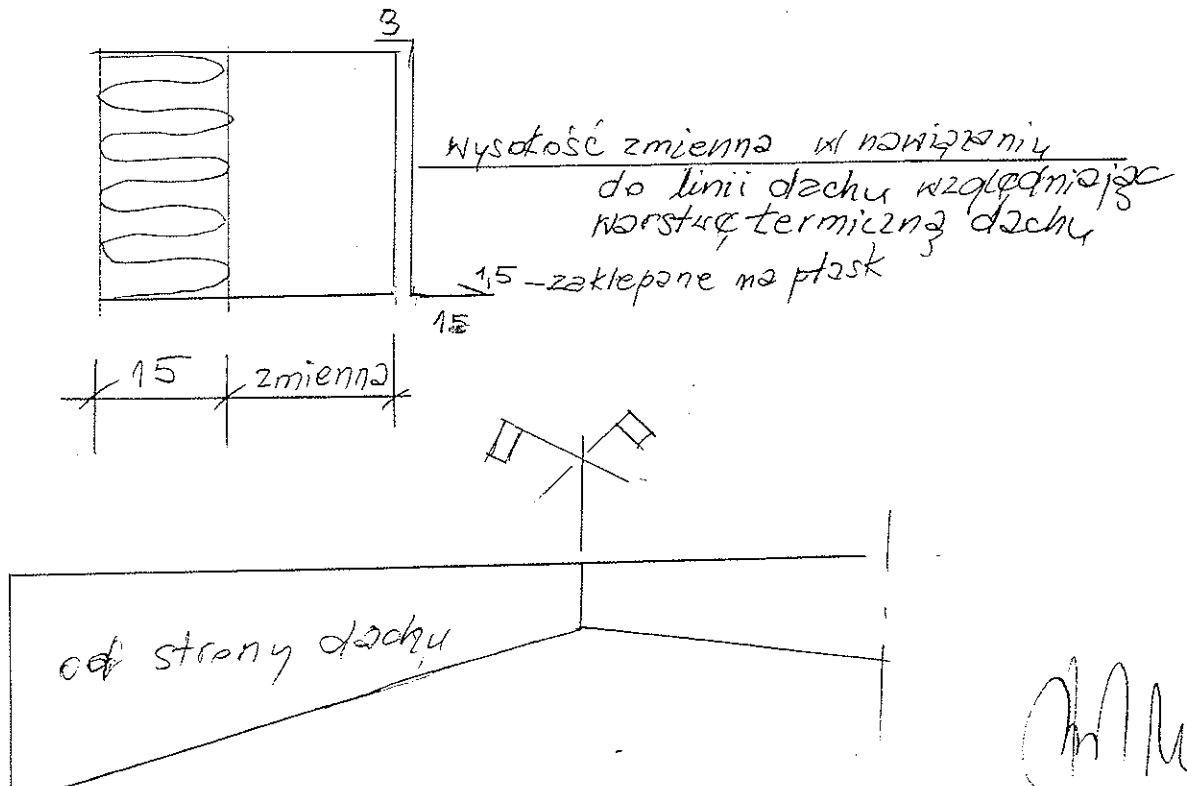 3
wysokość zmienna w nawiązaniu
do linii dachu względniając
warstwę termiczną dachu
1,5 - zaklepane na płask
15
15 zmienna
od strony dachu